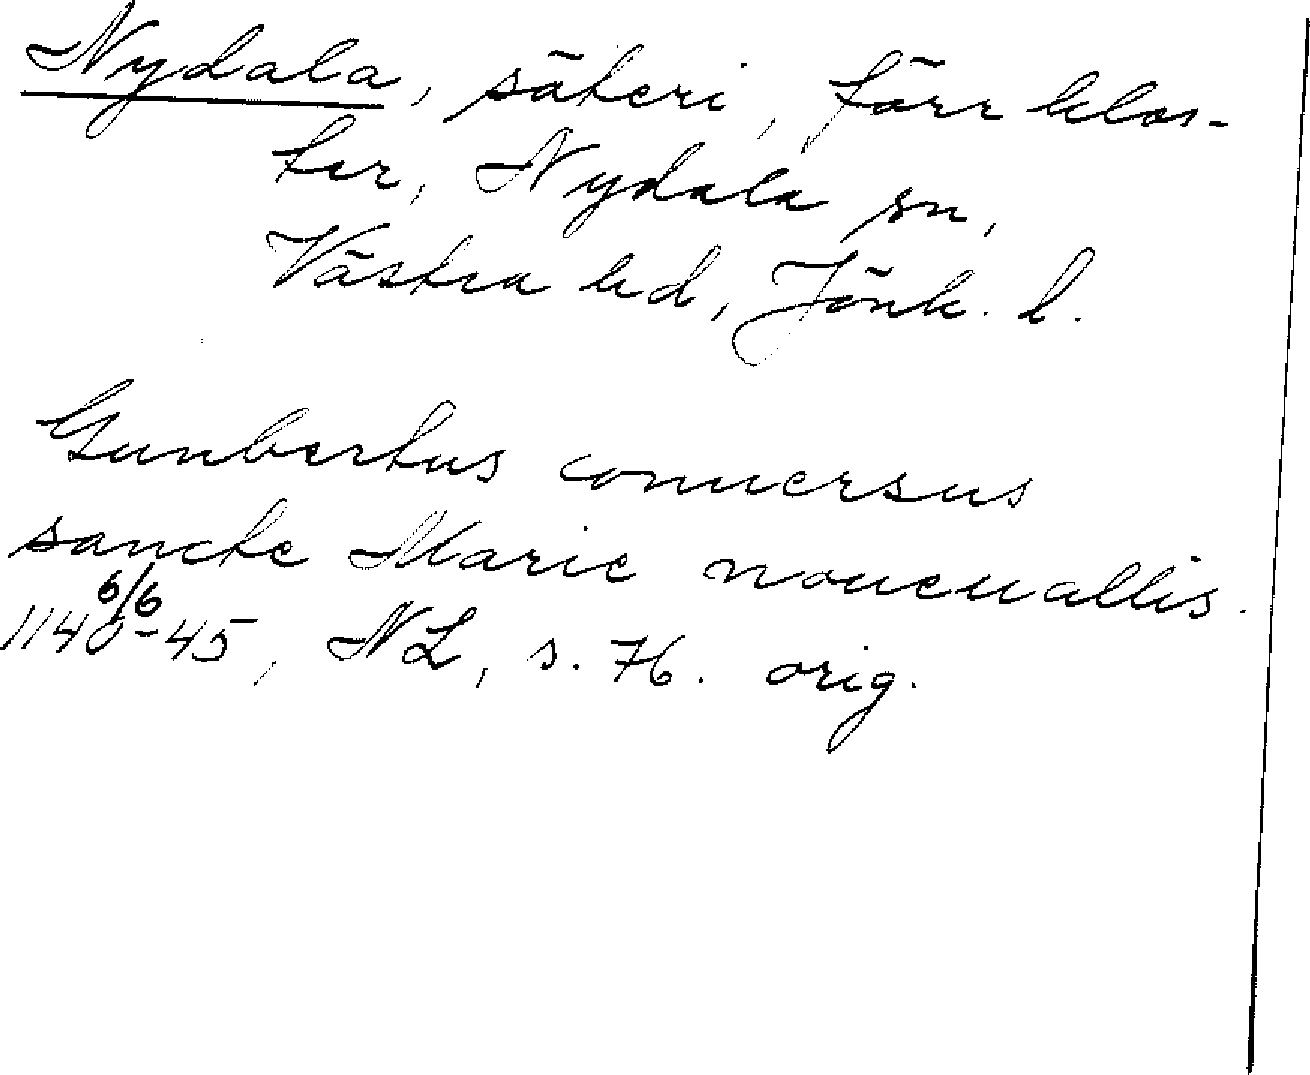 Nydala, säteri, förr klos-
ter, Nydala sn,
Västra hd, Jönk. l.
Gunbertus conuersus
sancte Marie noueuallis.
6/6
1140-45, NL, s. 76. orig.